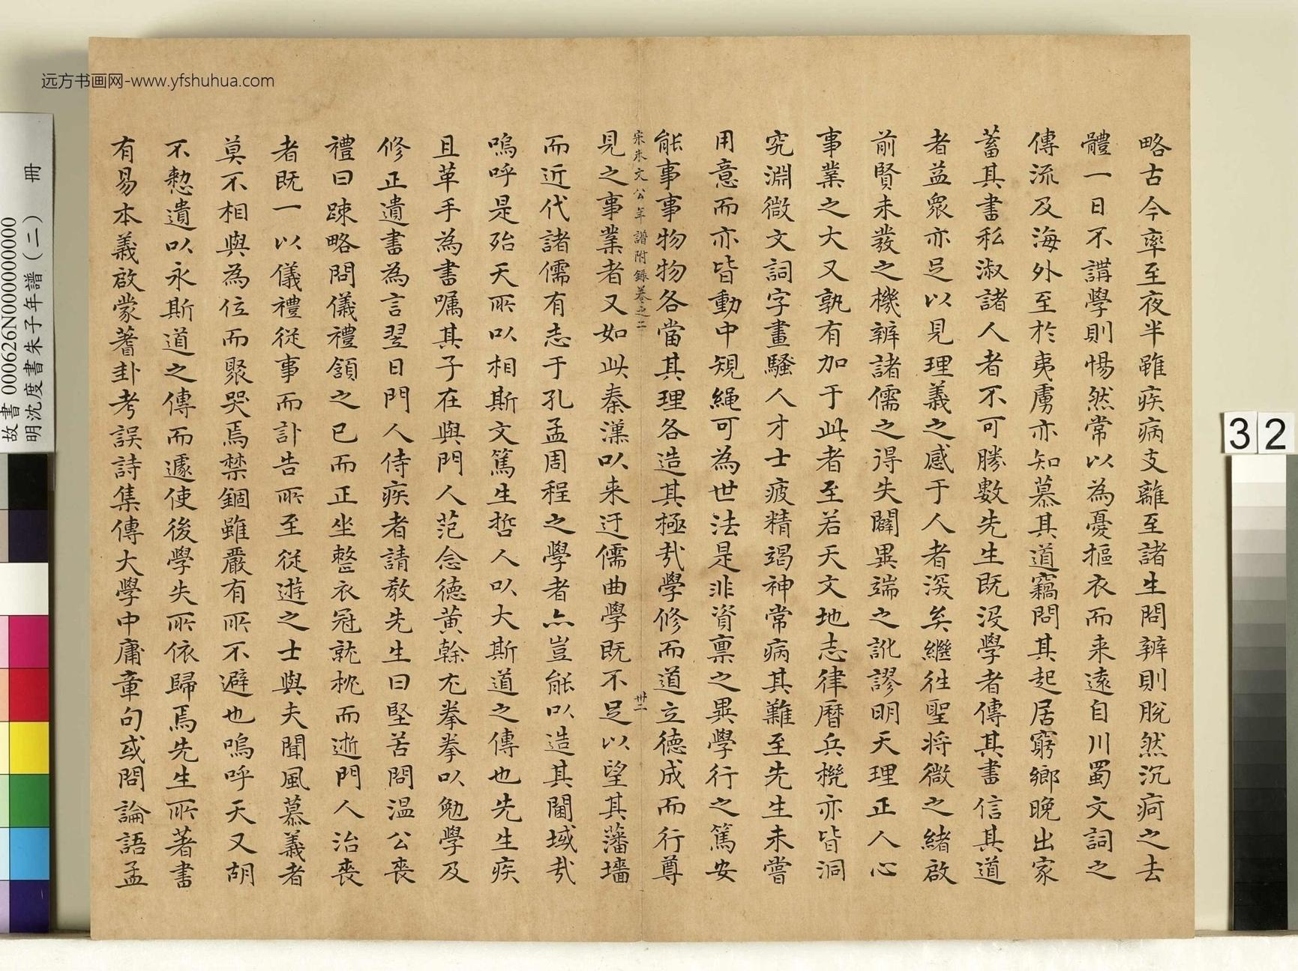 远方书画网-www.yfshuhua.com
略古今率至夜半雖疾病支離至諸生問辨則脫然沉痾之去
體一日不講學則惕然常以為憂摳衣而来遠自川蜀文詞之
傳流及海外至於夷虜亦知慕其道竊問其起居窮鄉晚出家
蓄其書私淑諸人者不可勝數先生既沒學者傳其書信其道
者益衆亦足以見理義之感于人者深矣繼徃聖将微之緒啟
前賢未發之機辨諸儒之得失闢異端之訛謬明天理正人心
事業之大又孰有加于此者至若天文地志律曆兵機亦皆洞
究淵微文詞字畫騷人才士疲精竭神常病其難至先生未嘗
用意而亦皆動中規繩可為世法是非資禀之異學行之篤安
能事事物物各當其理各造其極㢤學修而道立德成而行尊
宋朱文公年譜附錄卷之二
卅二
見之事業者又如此秦漢以来迂儒曲學既不足以望其藩墻
而近代諸儒有志于孔孟周程之學者亦豈能以造其閫域㢤
嗚呼是殆天所以相斯文篤生哲人以大斯道之傳也先生疾
且革手為書囑其子在與門人范念德黄榦尤拳拳以勉學及
修正遺書為言翌日門人侍疾者請教先生曰堅苦問温公喪
禮曰踈略問儀禮頷之已而正坐整衣冠就枕而逝門人治喪
者既一以儀禮從事而訃告所至從遊之士與夫聞風慕義者
莫不相與為位而聚哭焉禁錮雖嚴有所不避也嗚呼天又胡
不憗遺以永斯道之傳而遽使後學失所依歸焉先生所著書
有易本義啟蒙蓍卦考誤詩集傳大學中庸章句或問論語孟
故書 000626N000000000
明沈度書朱子年譜(二) 冊
32